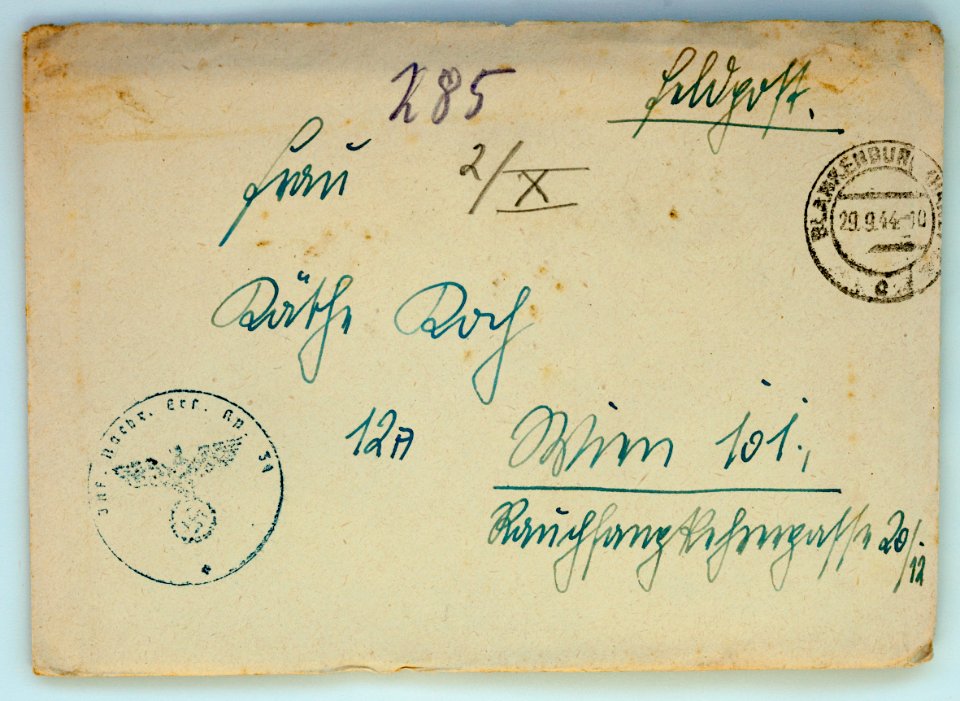 285
Feldpost.
Frau
2/X
BLANKENBURG (HARZ)
29.9.44-10
c
Käthe Koch
Inf. Nachr. Ers. Kp. 31
12A
Wien 101.,
Rauchfangkehrergasse 20/.
/12